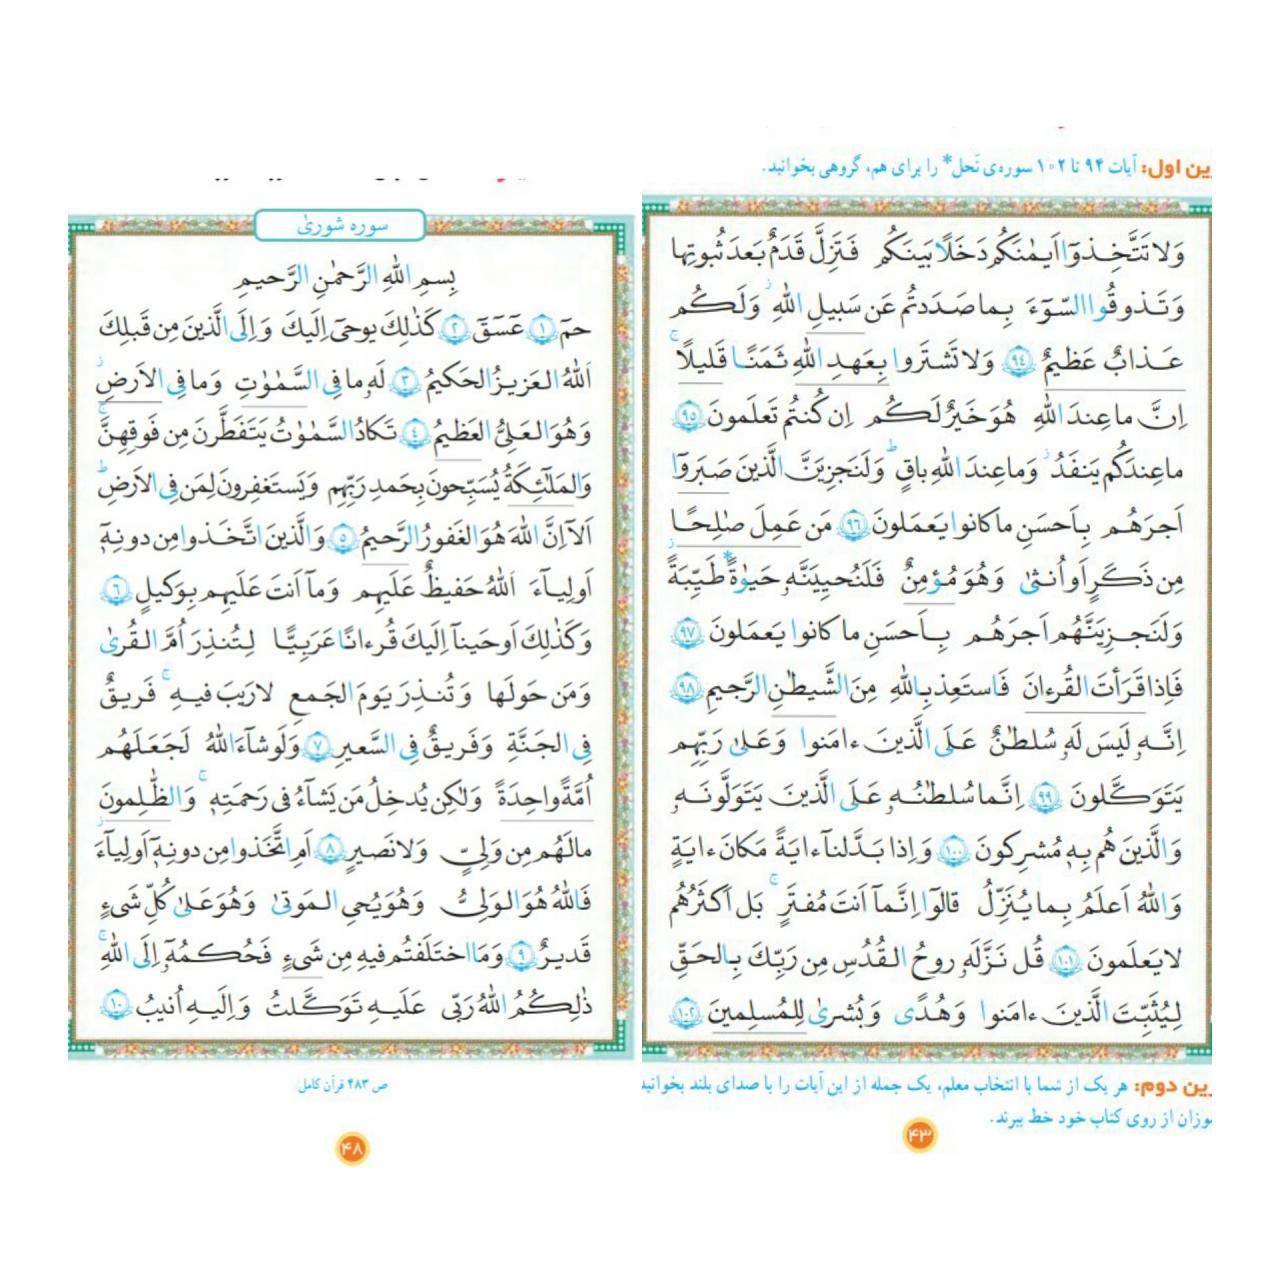 رین اول: آیات ۹۴ تا ۱۰۲ سوره‌ی نَحل* را برای هم، گروهی بخوانید.
وَلا تَتَّخِذوٓا اَیمٰنَکُم دَخَلًا بَینَکُم فَتَزِلَّ قَدَمٌ بَعدَ ثُبوتِها
وَ تَذوقُوا السّوٓءَ بِما صَدَدتُم عَن سَبیلِ اللّٰهِ ز وَ لَکُم
عَذابٌ عَظیمٌ ﴿۹۴﴾ وَلا تَشتَروا بِعَهدِ اللّٰهِ ثَمَنًا قَلیلًا ج
اِنَّ ما عِندَ اللّٰهِ هُوَ خَیرٌ لَکُم اِن کُنتُم تَعلَمونَ ﴿۹۵﴾
ما عِندَکُم یَنفَدُ ز وَما عِندَ اللّٰهِ باقٍ ط وَ لَنَجزِیَنَّ الَّذینَ صَبَروٓا
اَجرَهُم بِاَحسَنِ ما کانوا یَعمَلونَ ﴿۹۶﴾ مَن عَمِلَ صٰلِحًا
مِن ذَکَرٍ اَو اُنثیٰ وَهُوَ مُؤمِنٌ فَلَنُحیِیَنَّهٗ حَیٰوةً* طَیِّبَةً ز
وَ لَنَجزِیَنَّهُم اَجرَهُم بِاَحسَنِ ما کانوا یَعمَلونَ ﴿۹۷﴾
فَاِذا قَرَأتَ القُرءانَ فَاستَعِذ بِاللّٰهِ مِنَ الشَّیطٰنِ الرَّجیمِ ﴿۹۸﴾
اِنَّهٗ لَیسَ لَهٗ سُلطٰنٌ عَلَی الَّذینَ ءامَنوا وَ عَلیٰ رَبِّهِم
یَتَوَکَّلونَ ﴿۹۹﴾ اِنَّما سُلطٰنُهٗ عَلَی الَّذینَ یَتَوَلَّونَهٗ
وَالَّذینَ هُم بِهٖ مُشرِکونَ ﴿۱۰۰﴾ وَ اِذا بَدَّلنآ ءایَةً مَکانَ ءایَةٍ
وَاللّٰهُ اَعلَمُ بِما یُنَزِّلُ قالوٓا اِنَّمآ اَنتَ مُفتَرٍ ج بَل اَکثَرُهُم
لا یَعلَمونَ ﴿۱۰۱﴾ قُل نَزَّلَهٗ روحُ القُدُسِ مِن رَبِّکَ بِالحَقِّ
لِیُثَبِّتَ الَّذینَ ءامَنوا وَ هُدًی وَ بُشریٰ لِلمُسلِمینَ ﴿۱۰۲﴾
رین دوم: هر یک از شما با انتخاب معلم، یک جمله از این آیات را با صدای بلند بخوانید
موزان از روی کتاب خود خط ببرند.
۴۳
سوره شوریٰ
بِسمِ اللّٰهِ الرَّحمٰنِ الرَّحیمِ
حمٓ ﴿۱﴾ عٓسٓقٓ ﴿۲﴾ کَذٰلِکَ یوحیٓ اِلَیکَ وَ اِلَی الَّذینَ مِن قَبلِکَ
اَللّٰهُ العَزیزُ الحَکیمُ ﴿۳﴾ لَهٗ ما فِی السَّمٰوٰتِ وَما فِی الاَرضِ ز
وَهُوَ العَلِیُّ العَظیمُ ﴿۴﴾ تَکادُ السَّمٰوٰتُ یَتَفَطَّرنَ مِن فَوقِهِنَّ ج
وَالمَلٰٓئِکَةُ یُسَبِّحونَ بِحَمدِ رَبِّهِم وَ یَستَغفِرونَ لِمَن فِی الاَرضِ ط
اَلآ اِنَّ اللّٰهَ هُوَ الغَفورُ الرَّحیمُ ﴿۵﴾ وَالَّذینَ اتَّخَذوا مِن دونِهٖٓ
اَولِیآءَ اَللّٰهُ حَفیظٌ عَلَیهِم وَمآ اَنتَ عَلَیهِم بِوَکیلٍ ﴿۶﴾
وَ کَذٰلِکَ اَوحَینآ اِلَیکَ قُرءانًا عَرَبِیًّا لِتُنذِرَ اُمَّ القُریٰ
وَ مَن حَولَها وَ تُنذِرَ یَومَ الجَمعِ لا رَیبَ فیهِ ج فَریقٌ
فِی الجَنَّةِ وَ فَریقٌ فِی السَّعیرِ ﴿۷﴾ وَلَو شآءَ اللّٰهُ لَجَعَلَهُم
اُمَّةً واحِدَةً وَلٰکِن یُدخِلُ مَن یَشآءُ فی رَحمَتِهٖ ج وَالظّٰلِمونَ
ما لَهُم مِن وَلِیٍّ وَلا نَصیرٍ ﴿۸﴾ اَمِ اتَّخَذوا مِن دونِهٖٓ اَولِیآءَ ز
فَاللّٰهُ هُوَ الوَلِیُّ وَهُوَ یُحیِ المَوتیٰ وَهُوَ عَلیٰ کُلِّ شَیءٍ
قَدیرٌ ﴿۹﴾ وَ مَا اختَلَفتُم فیهِ مِن شَیءٍ فَحُکمُهٗٓ اِلَی اللّٰهِ ج
ذٰلِکُمُ اللّٰهُ رَبّی عَلَیهِ تَوَکَّلتُ وَ اِلَیهِ اُنیبُ ﴿۱۰﴾
ص ۴۸۳ قرآن کامل
۴۸